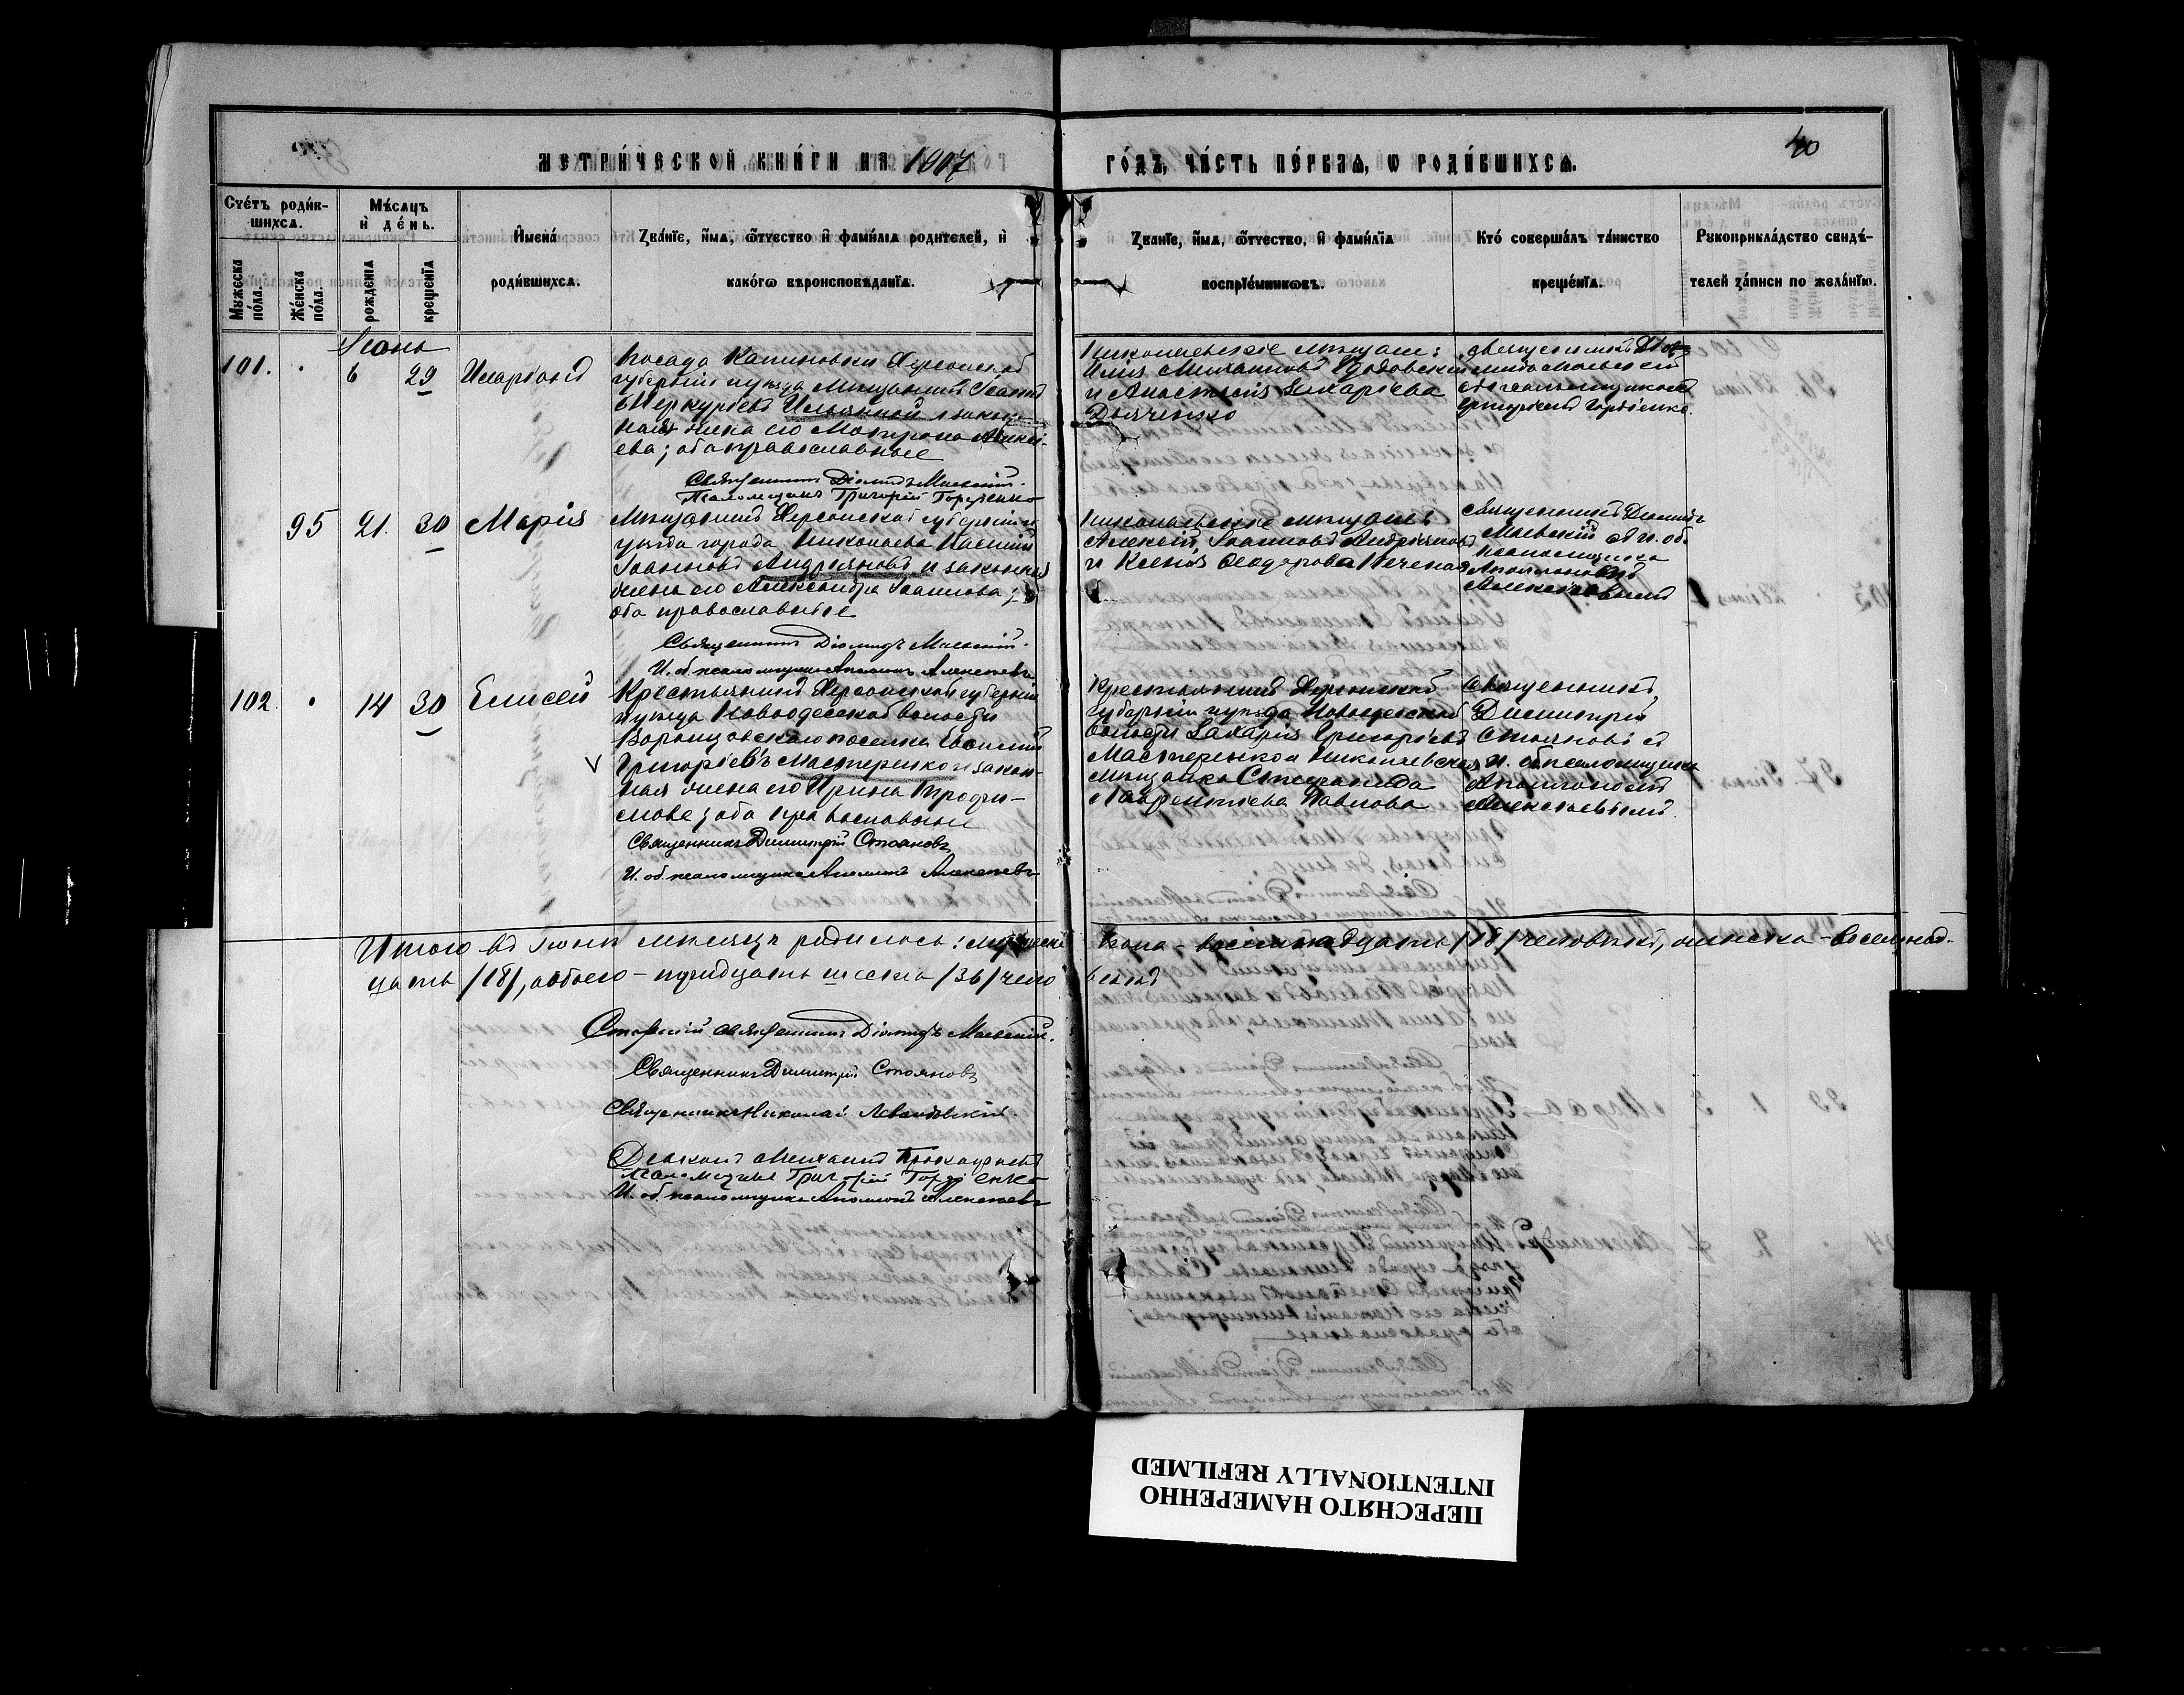 40
МЕТРИ́ЧЕСКОЙ КНИ́ГИ НА 1907 ГО́ДЪ, ЧА́СТЬ ПЕ́РВАЯ, Ѡ РОДИ́ВШИХСЯ.
Сче́тъ роди́в-
шихсѧ.
Мꙋжеска по́ла.
Же́нска по́ла.
Мѣ́сѧцъ
и҆ де́нь.
рожде́нїѧ
креще́нїѧ
И҆мена́
роди́вшихсѧ.
Ꙁва́нїе, и҆́мѧ, ѻ҆́тчество и҆ фами́лїѧ роди́телей, и҆
како́гѡ вѣроисповѣ́данїѧ.
Ꙁва́нїе, и҆́мѧ, ѻ҆́тчество, и҆ фами́лїѧ
воспрїе́мникѡвъ.
Кто́ соверша́лъ та́инство
креще́нїѧ.
Рꙋкоприкла́дство свидѣ́-
телей ꙁа́писи по жела́нїю.
Іюнь
101. 6 29 Иларіонъ
Посада Калиновки Херсонской
губерніи и уѣзда Мѣщанинъ Іоаннъ
Меркуріевъ
жена его Матрона Алексѣ-
ева; оба православные
Священникъ Діомидъ Маевскій.
Псаломщикъ Григорій Гордіенко
Николаевскіе мѣщане:
Михаиловъ
и Анастасія Захаріева
Дьяченко
священникъ Діо-
мидъ Маевскій
съ псаломщикомъ
Григоріемъ Гордіенко
95 21. 30 Марія
Мѣщанинъ Херсонской губерніи и
уѣзда города Николаева Василій
Іоанновъ Андріяновъ и законная
жена его Александра Іоаннова;
оба православные
Священникъ Діомидъ Маевскій.
И. об. псаломщика Аполлонъ Алексѣевъ
Николаевскіе мѣщане
Алексій Іоанновъ Андріяновъ
и Ксенія Ѳеодорова
священникъ Діомидъ
Маевскій съ и. об.
псаломщика
Аполлономъ
Алексѣевымъ
102. 14 30 Елисей
Крестьянинъ Херсонской губерніи
и уѣзда Новоодесской волости
Воронцовскаго поселка Евѳимій
Григорьевъ Мастеренко и закон-
ная жена его Ирина Трофи-
мова; оба православные
Священникъ Димитрій Стояновъ
И. об. псаломщика Аполлонъ Алексѣевъ
Крестьянинъ Херсонской
губерніи и уѣзда Новоодесской
волости Захарія Григорьевъ
Мастеренко и Николаевская
мѣщанка Стефанида
Лаврентіева Павлова
Священникъ
Димитрій
Стояновъ съ
и. об. псаломщика
Аполлономъ
Алексѣевымъ
Итого въ Іюнѣ мѣсяцѣ родилось: мужеска пола – восемнадцать /18/ человѣкъ, женска – восемнад-
цать /18/, обоего – тридцать шесть /36/ человѣкъ
Старшій священникъ Діомидъ Маевскій.
Священникъ Димитрій Стояновъ
Священникъ Николай Левандовскій.
Діаконъ Михаилъ
Псаломщикъ Григорій Гордіенко
И. об. псаломщика Аполлонъ Алексѣевъ
ПЕРЕСНЯТО НАМЕРЕННО
INTENTIONALLY REFILMED